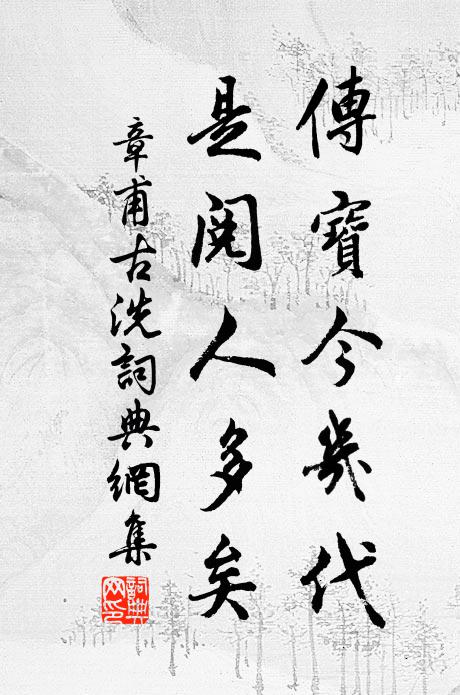 傳寶今幾代
是閱人多矣
章甫古洗詞典網集
詞典